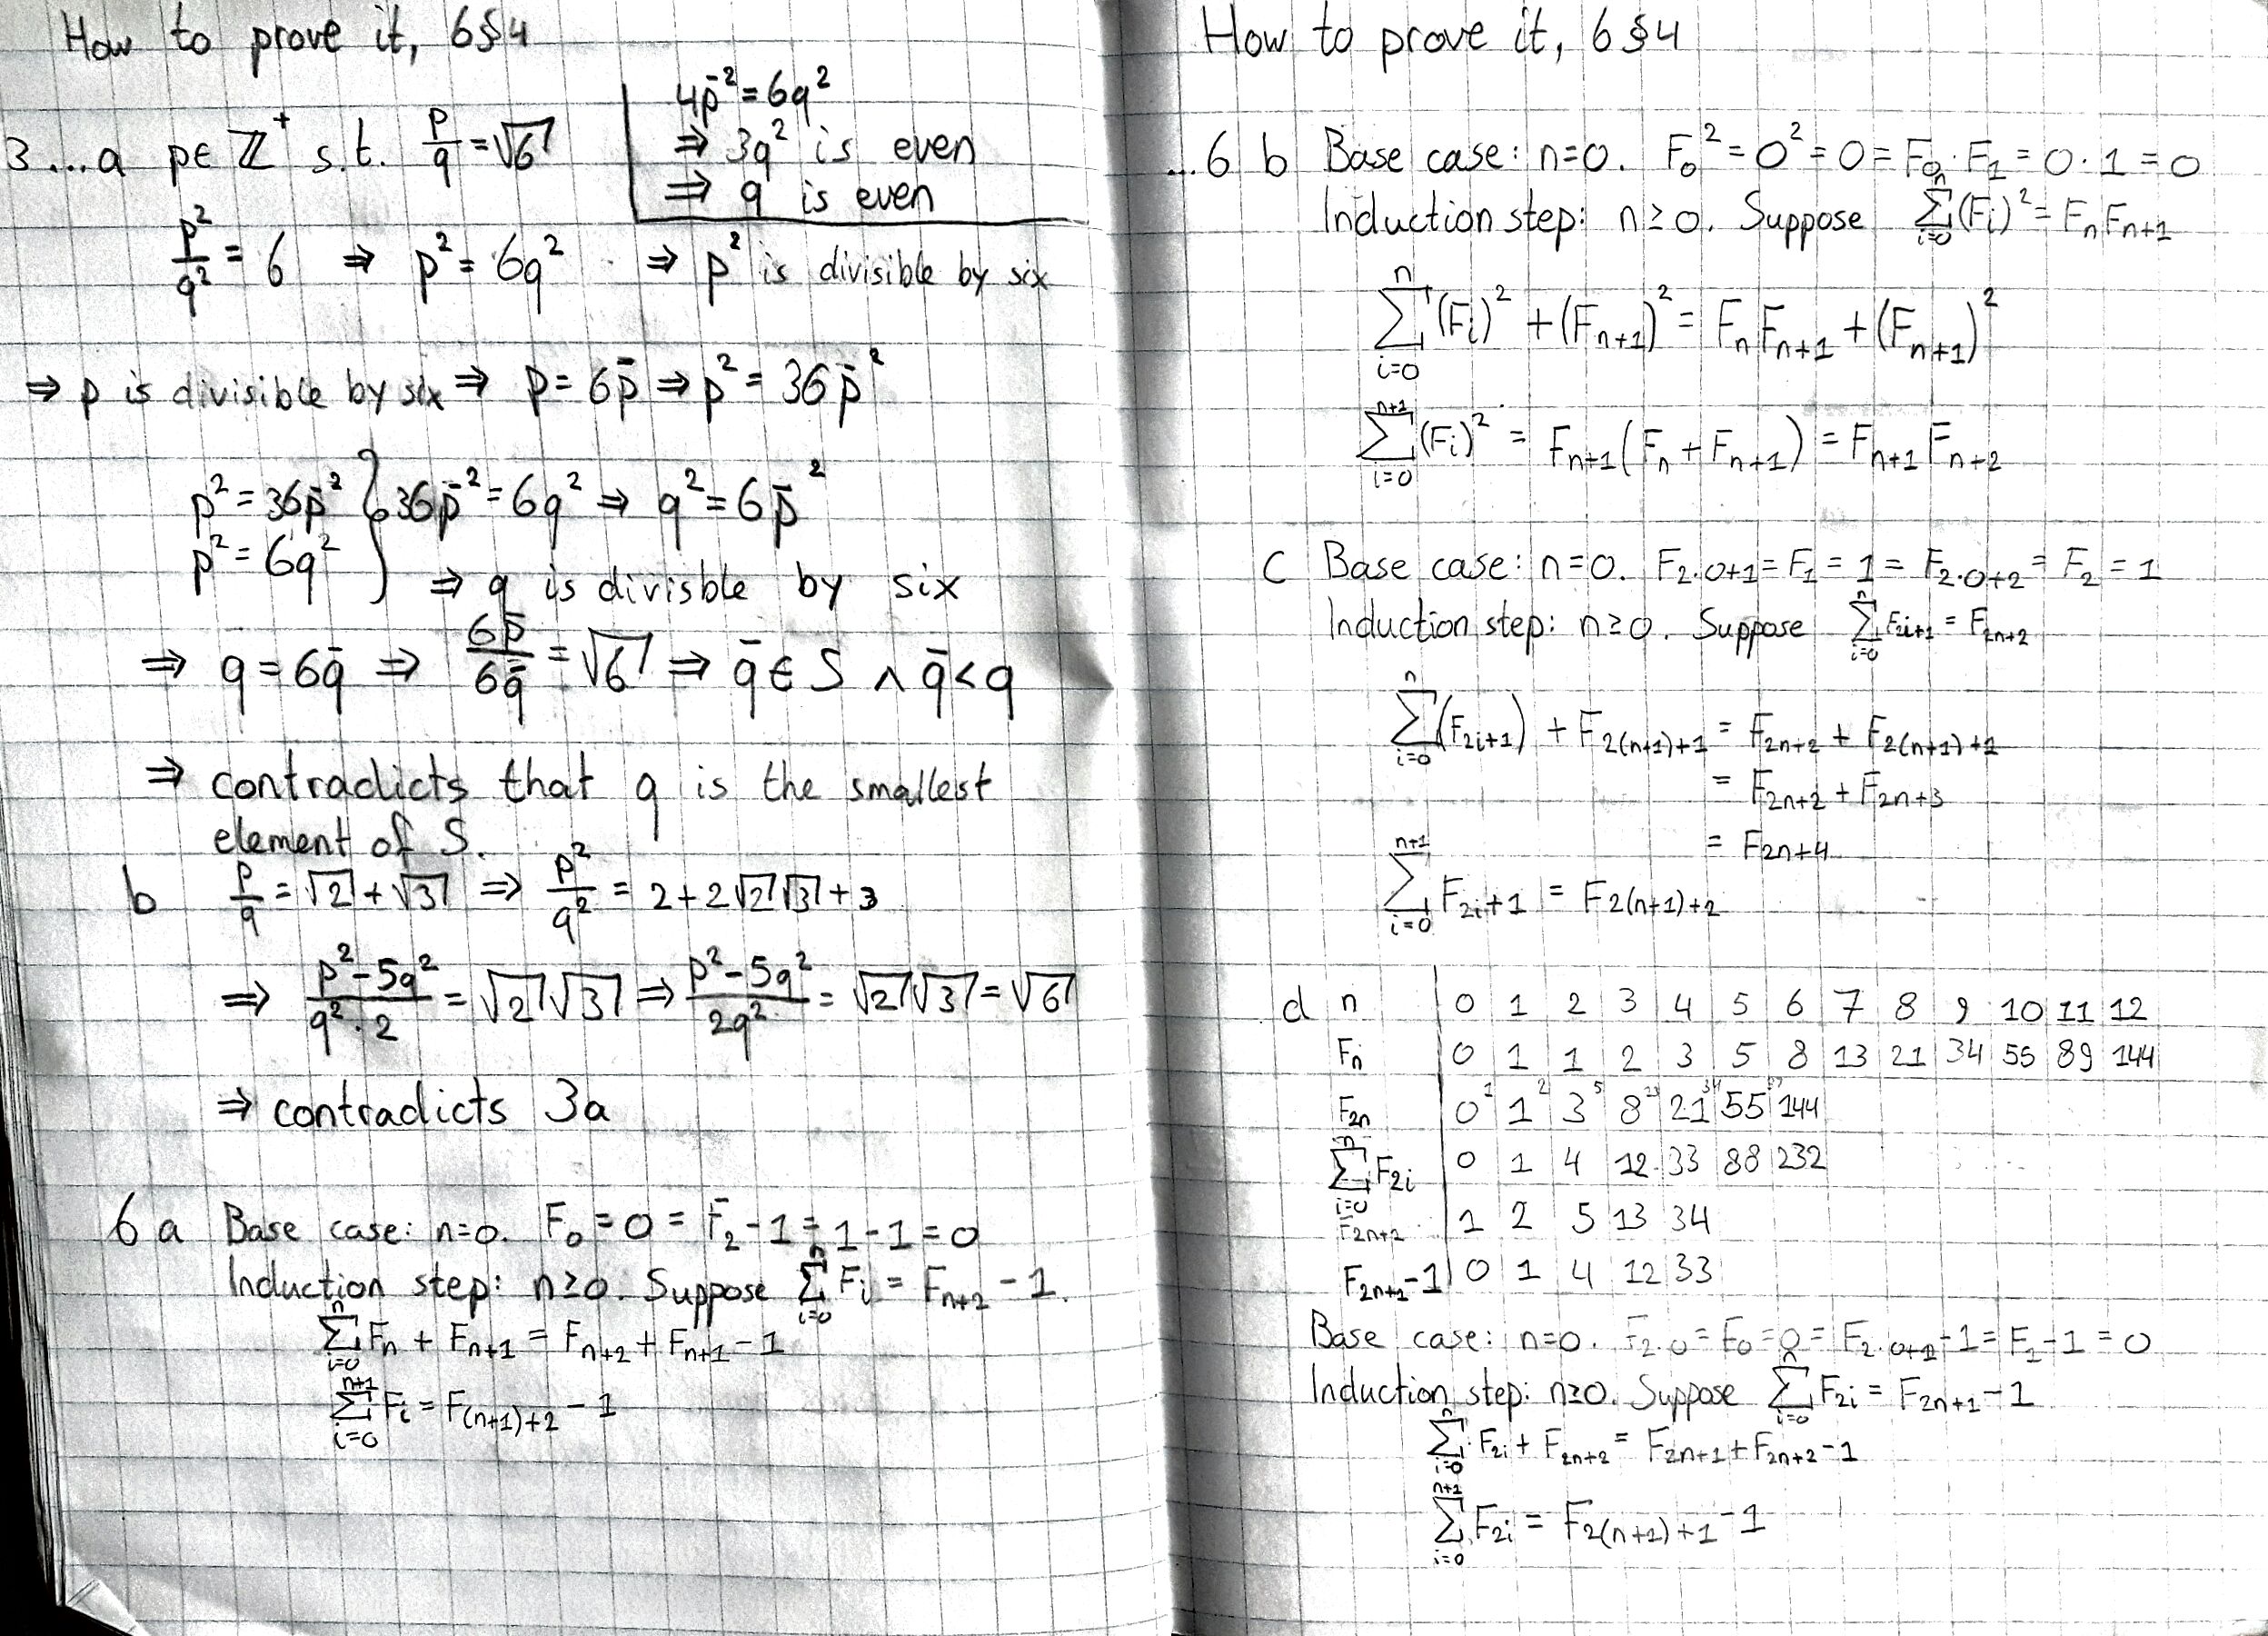 How to prove it, 6§4
3...a p∈ℤ⁺ s.t. p/q = √6
4p̄² = 6q²
⇒ 3q² is even
⇒ q is even
p²/q² = 6 ⇒ p² = 6q² ⇒ p² is divisible by six
⇒ p is divisible by six ⇒ p = 6p̄ ⇒ p² = 36p̄²
p² = 36p̄² } 36p̄² = 6q² ⇒ q² = 6p̄²
p² = 6q²
⇒ q is divisble by six
⇒ q = 6q̄ ⇒ 6p̄/6q̄ = √6 ⇒ q̄ ∈ S ∧ q̄ < q
⇒ contradicts that q is the smallest
element of S.
b p/q = √2 + √3 ⇒ p²/q² = 2 + 2√2√3 + 3
⇒ (p²-5q²)/(q²·2) = √2√3 ⇒ (p²-5q²)/(2q²) = √2√3 = √6
⇒ contradicts 3a
6 a Base case: n=0. F₀ = 0 = F₂ - 1 = 1 - 1 = 0
Induction step: n≥0. Suppose ∑_{i=0}^{n} F_i = F_{n+2} - 1.
∑_{i=0}^{n} F_n + F_{n+1} = F_{n+2} + F_{n+1} - 1
∑_{i=0}^{n+1} F_i = F_{(n+1)+2} - 1
How to prove it, 6§4
...6 b Base case: n=0. F₀² = 0² = 0 = F₀·F₁ = 0·1 = 0
Induction step: n≥0. Suppose ∑_{i=0}^{n} (F_i)² = F_n F_{n+1}
∑_{i=0}^{n} (F_i)² + (F_{n+1})² = F_n F_{n+1} + (F_{n+1})²
∑_{i=0}^{n+1} (F_i)² = F_{n+1}(F_n + F_{n+1}) = F_{n+1} F_{n+2}
c Base case: n=0. F_{2·0+1} = F₁ = 1 = F_{2·0+2} = F₂ = 1
Induction step: n≥0. Suppose ∑_{i=0}^{n} F_{2i+1} = F_{2n+2}
∑_{i=0}^{n} (F_{2i+1}) + F_{2(n+1)+1} = F_{2n+2} + F_{2(n+1)+1}
= F_{2n+2} + F_{2n+3}
= F_{2n+4}
∑_{i=0}^{n+1} F_{2i+1} = F_{2(n+1)+2}
d n 0 1 2 3 4 5 6 7 8 9 10 11 12
F_n 0 1 1 2 3 5 8 13 21 34 55 89 144
F_{2n} 0 1 3 8 21 55 144
∑_{i=0}^{n} F_{2i} 0 1 4 12 33 88 232
F_{2n+1} 1 2 5 13 34
F_{2n+1}-1 0 1 4 12 33
Base case: n=0. F_{2·0} = F₀ = 0 = F_{2·0+1} - 1 = F₁ - 1 = 0
Induction step: n≥0. Suppose ∑_{i=0}^{n} F_{2i} = F_{2n+1} - 1
∑_{i=0}^{n} F_{2i} + F_{2n+2} = F_{2n+1} + F_{2n+2} - 1
∑_{i=0}^{n+1} F_{2i} = F_{2(n+1)+1} - 1